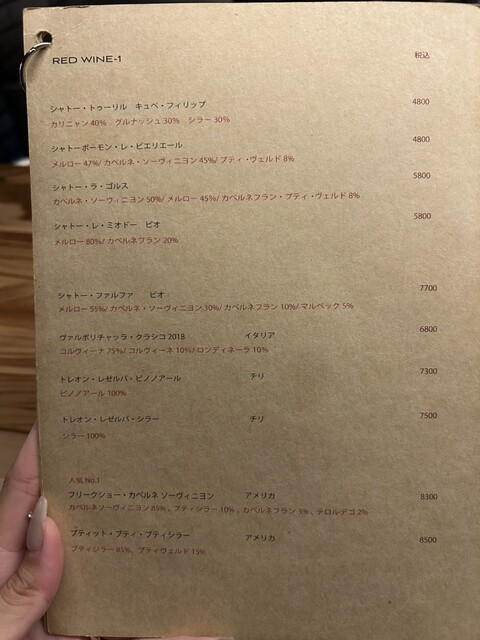 RED WINE-1 税込
シャトー・トゥーリル キュベ・フィリップ 4800
カリニャン 40% グルナッシュ 30% シラー 30%
シャトーボーモン・レ・ピエリエール 4800
メルロー 47%/ カベルネ・ソーヴィニヨン 45%/ プティ・ヴェルド 8%
シャトー・ラ・ゴルス 5800
カベルネ・ソーヴィニヨン 50%/ メルロー 45%/ カベルネフラン・プティ・ヴェルド 8%
シャトー・レ・ミオドー ビオ 5800
メルロー 80%/ カベルネフラン 20%
シャトー・ファルファ ビオ 7700
メルロー 55%/ カベルネ・ソーヴィニヨン 30%/ カベルネフラン 10%/ マルベック 5%
ヴァルポリチャッラ・クラシコ 2018 イタリア 6800
コルヴィーナ 75%/ コルヴィーネ 10%/ ロンディネーラ 10%
トレオン・レゼルバ・ピノノアール チリ 7300
ピノノアール 100%
トレオン・レゼルバ・シラー チリ 7500
シラー 100%
人気 No.1
フリークショー・カベルネ ソーヴィニヨン アメリカ 8300
カベルネソーヴィニヨン 85% , プティシラー 10% , カベルネフラン 3% , テロルデゴ 2%
プティット・プティ・プティシラー アメリカ 8500
プティシラー 85%, プティヴェルド 15%